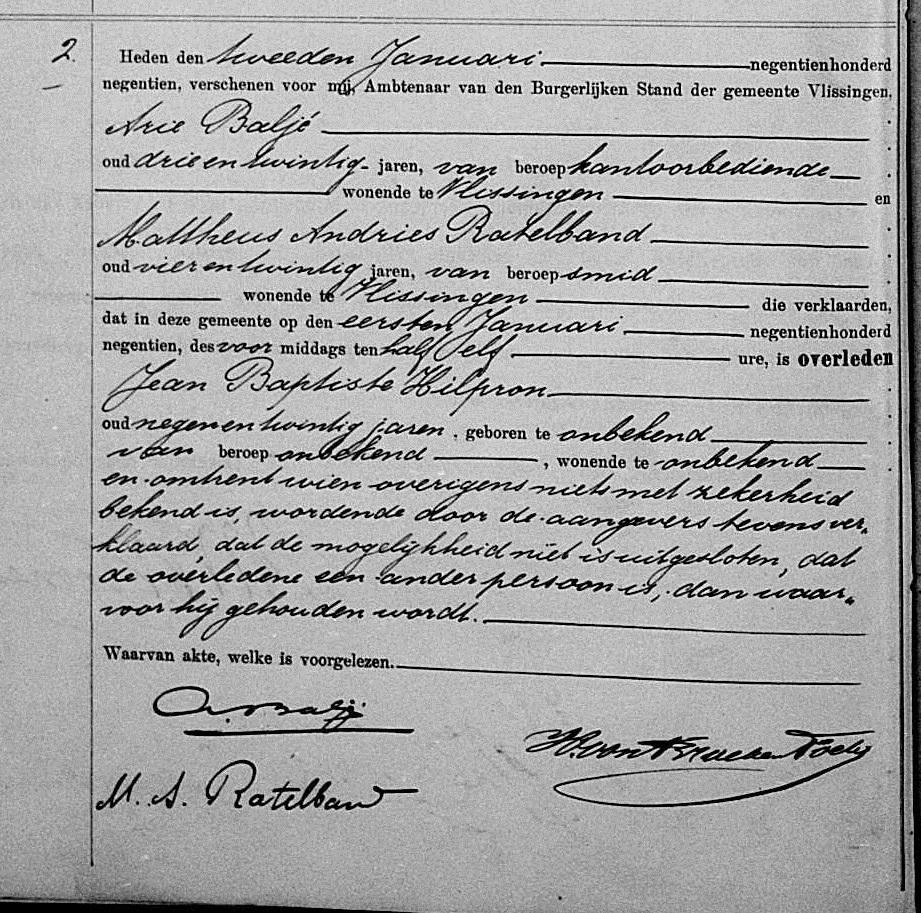 2.
Heden den tweeden Januari negentienhonderd
negentien, verschenen voor mij, Ambtenaar van den Burgerlijken Stand der gemeente Vlissingen,
Arie Baljé
oud drie en twintig jaren, van beroep kantoorbediende
wonende te Vlissingen en
Mattheus Andries Ratelband
oud vier en twintig jaren, van beroep smid
wonende te Vlissingen die verklaarden,
dat in deze gemeente op den eersten Januari negentienhonderd
negentien, des voor middags ten half elf ure, is overleden
Jean Baptiste Hilpron
oud negen en twintig jaren, geboren te onbekend
van beroep onbekend, wonende te onbekend
en omtrent wien overigens niets met zekerheid
bekend is, wordende door de aangevers tevens ver„
klaard, dat de mogelijkheid niet is uitgesloten, dat
de overledene een ander persoon is, dan waar„
voor hij gehouden wordt.
Waarvan akte, welke is voorgelezen.
A. Baljé
M. A. Ratelband